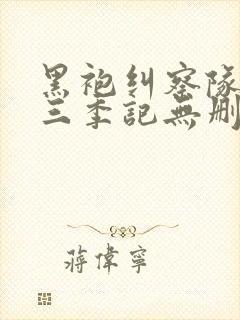 黑袍纠察队
三季記無删
蒋偉寧